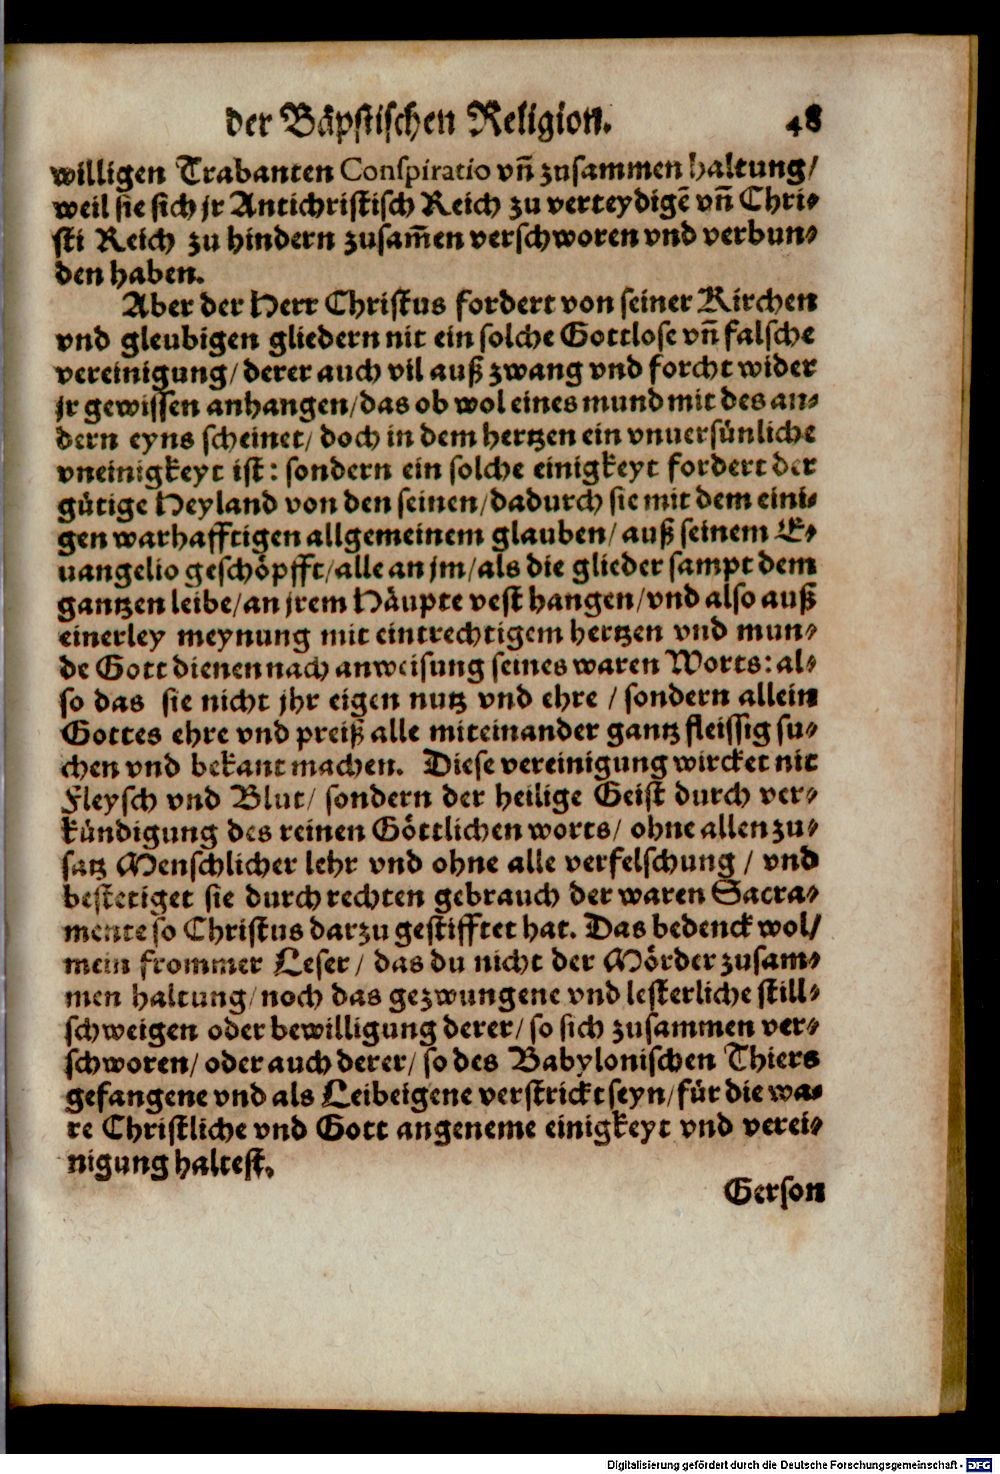 der Bäpstischen Religion. 48
willigen Trabanten Conspiratio vñ zusammen haltung/
weil sie sich jr Antichristisch Reich zu verteydigē vñ Chri-
sti Reich zu hindern zusam̃en verschworen vnd verbun-
den haben.
Aber der Herr Christus fordert von seiner Kirchen
vnd gleubigen gliedern nit ein solche Gottlose vñ falsche
vereinigung/ derer auch vil auß zwang vnd forcht wider
jr gewissen anhangen/das ob wol eines mund mit des an-
dern eyns scheinet/ doch in dem hertzen ein vnuersünliche
vneinigkeyt ist: sondern ein solche einigkeyt fordert der
gütige Heyland von den seinen/dadurch sie mit dem eini-
gen warhafftigen allgemeinem glauben/ auß seinem E-
uangelio geschöpfft/alle an jm/als die glieder sampt dem
gantzen leibe/an jrem Häupte vest hangen/vnd also auß
einerley meynung mit eintrechtigem hertzen vnd mun-
de Gott dienen nach anweisung seines waren Worts: al-
so das sie nicht jhr eigen nutz vnd ehre / sondern allein
Gottes ehre vnd preiß alle miteinander gantz fleissig su-
chen vnd bekant machen. Diese vereinigung wircket nit
Fleysch vnd Blut/ sondern der heilige Geist durch ver-
kündigung des reinen Göttlichen worts/ ohne allen zu-
satz Menschlicher lehr vnd ohne alle verfelschung / vnd
bestetiget sie durch rechten gebrauch der waren Sacra-
mente so Christus darzu gestifftet hat. Das bedenck wol/
mein frommer Leser/ das du nicht der Mörder zusam-
men haltung/noch das gezwungene vnd lesterliche still-
schweigen oder bewilligung derer/ so sich zusammen ver-
schworen/ oder auch derer/ so des Babylonischen Thiers
gefangene vnd als Leibeigene verstrickt seyn/für die wa-
re Christliche vnd Gott angeneme einigkeyt vnd verei-
nigung haltest.
Gerson
Digitalisierung gefördert durch die Deutsche Forschungsgemeinschaft - DFG